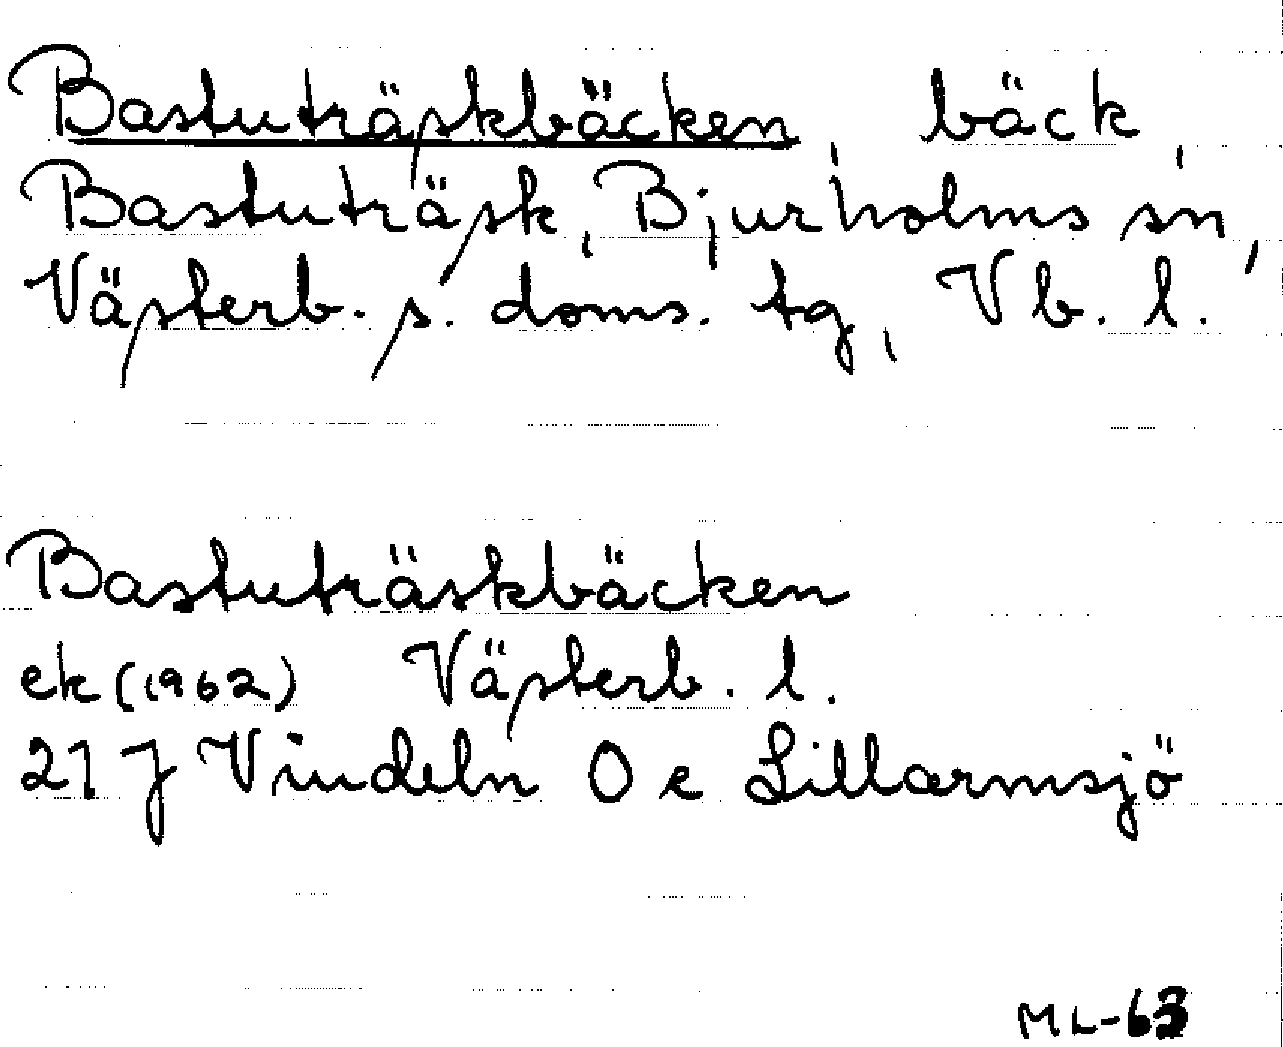 Bastuträskbäcken, bäck,
Bastuträsk, Bjurholms sn,
Västerb. s. doms. tg, Vb. l.
Bastuträskbäcken
ek (1962) Västerb. l.
21 J Vindeln 0 e Lillarmsjö
ML-63